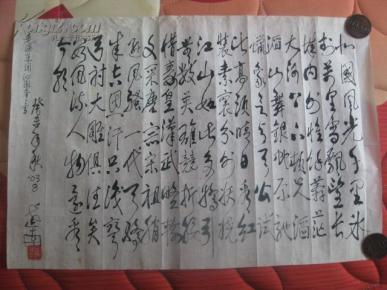 北國風光千里冰
封万里雪飘望长
城内外惟余莽茫
大河上下顿失滔
滔山舞银蛇原驰
蜡象欲与天公试
比高须晴日看红
装素裹分外妖娆
江山如此多娇引
无数英雄竞折腰
惜秦皇汉武略输
文采唐宗宋祖稍
逊风骚一代天骄
成吉思汗只识弯
弓射大雕俱往矣
数风流人物还看
今朝
癸未年秋 03.8